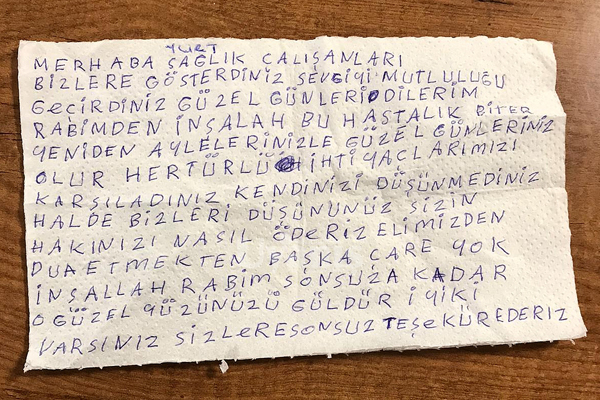 YURT
MERHABA SAĞLIK CALIŞANLARI
BİZLERE GÖSTERDİNİZ SEVGİYİ MUTLULUĞU
GECİRDİNİZ GÜZEL GÜNLERİ DİLERİM
RABİMDEN İNŞALAH BU HASTALIK BİTER
YENİDEN AYLELERİNİZLE GÜZEL GÜNLERİNİZ
OLUR HERTÜRLÜ İHTİYAÇLARIMIZI
KARŞILADINIZ KENDİNİZİ DÜŞÜNMEDİNİZ
HALDE BİZLERİ DÜŞÜNÜNÜZ SİZİN
HAKINIZI NASIL ÖDERİZ ELİMİZDEN
DUA ETMEKTEN BAŞKA CARE YOK
İNŞALLAH RABİM SONSUZA KADAR
O GÜZEL YÜZÜNÜZÜ GÜLDÜR İYİKİ
VARSINIZ SİZLERE SONSUZ TEŞEKÜR EDERİZ